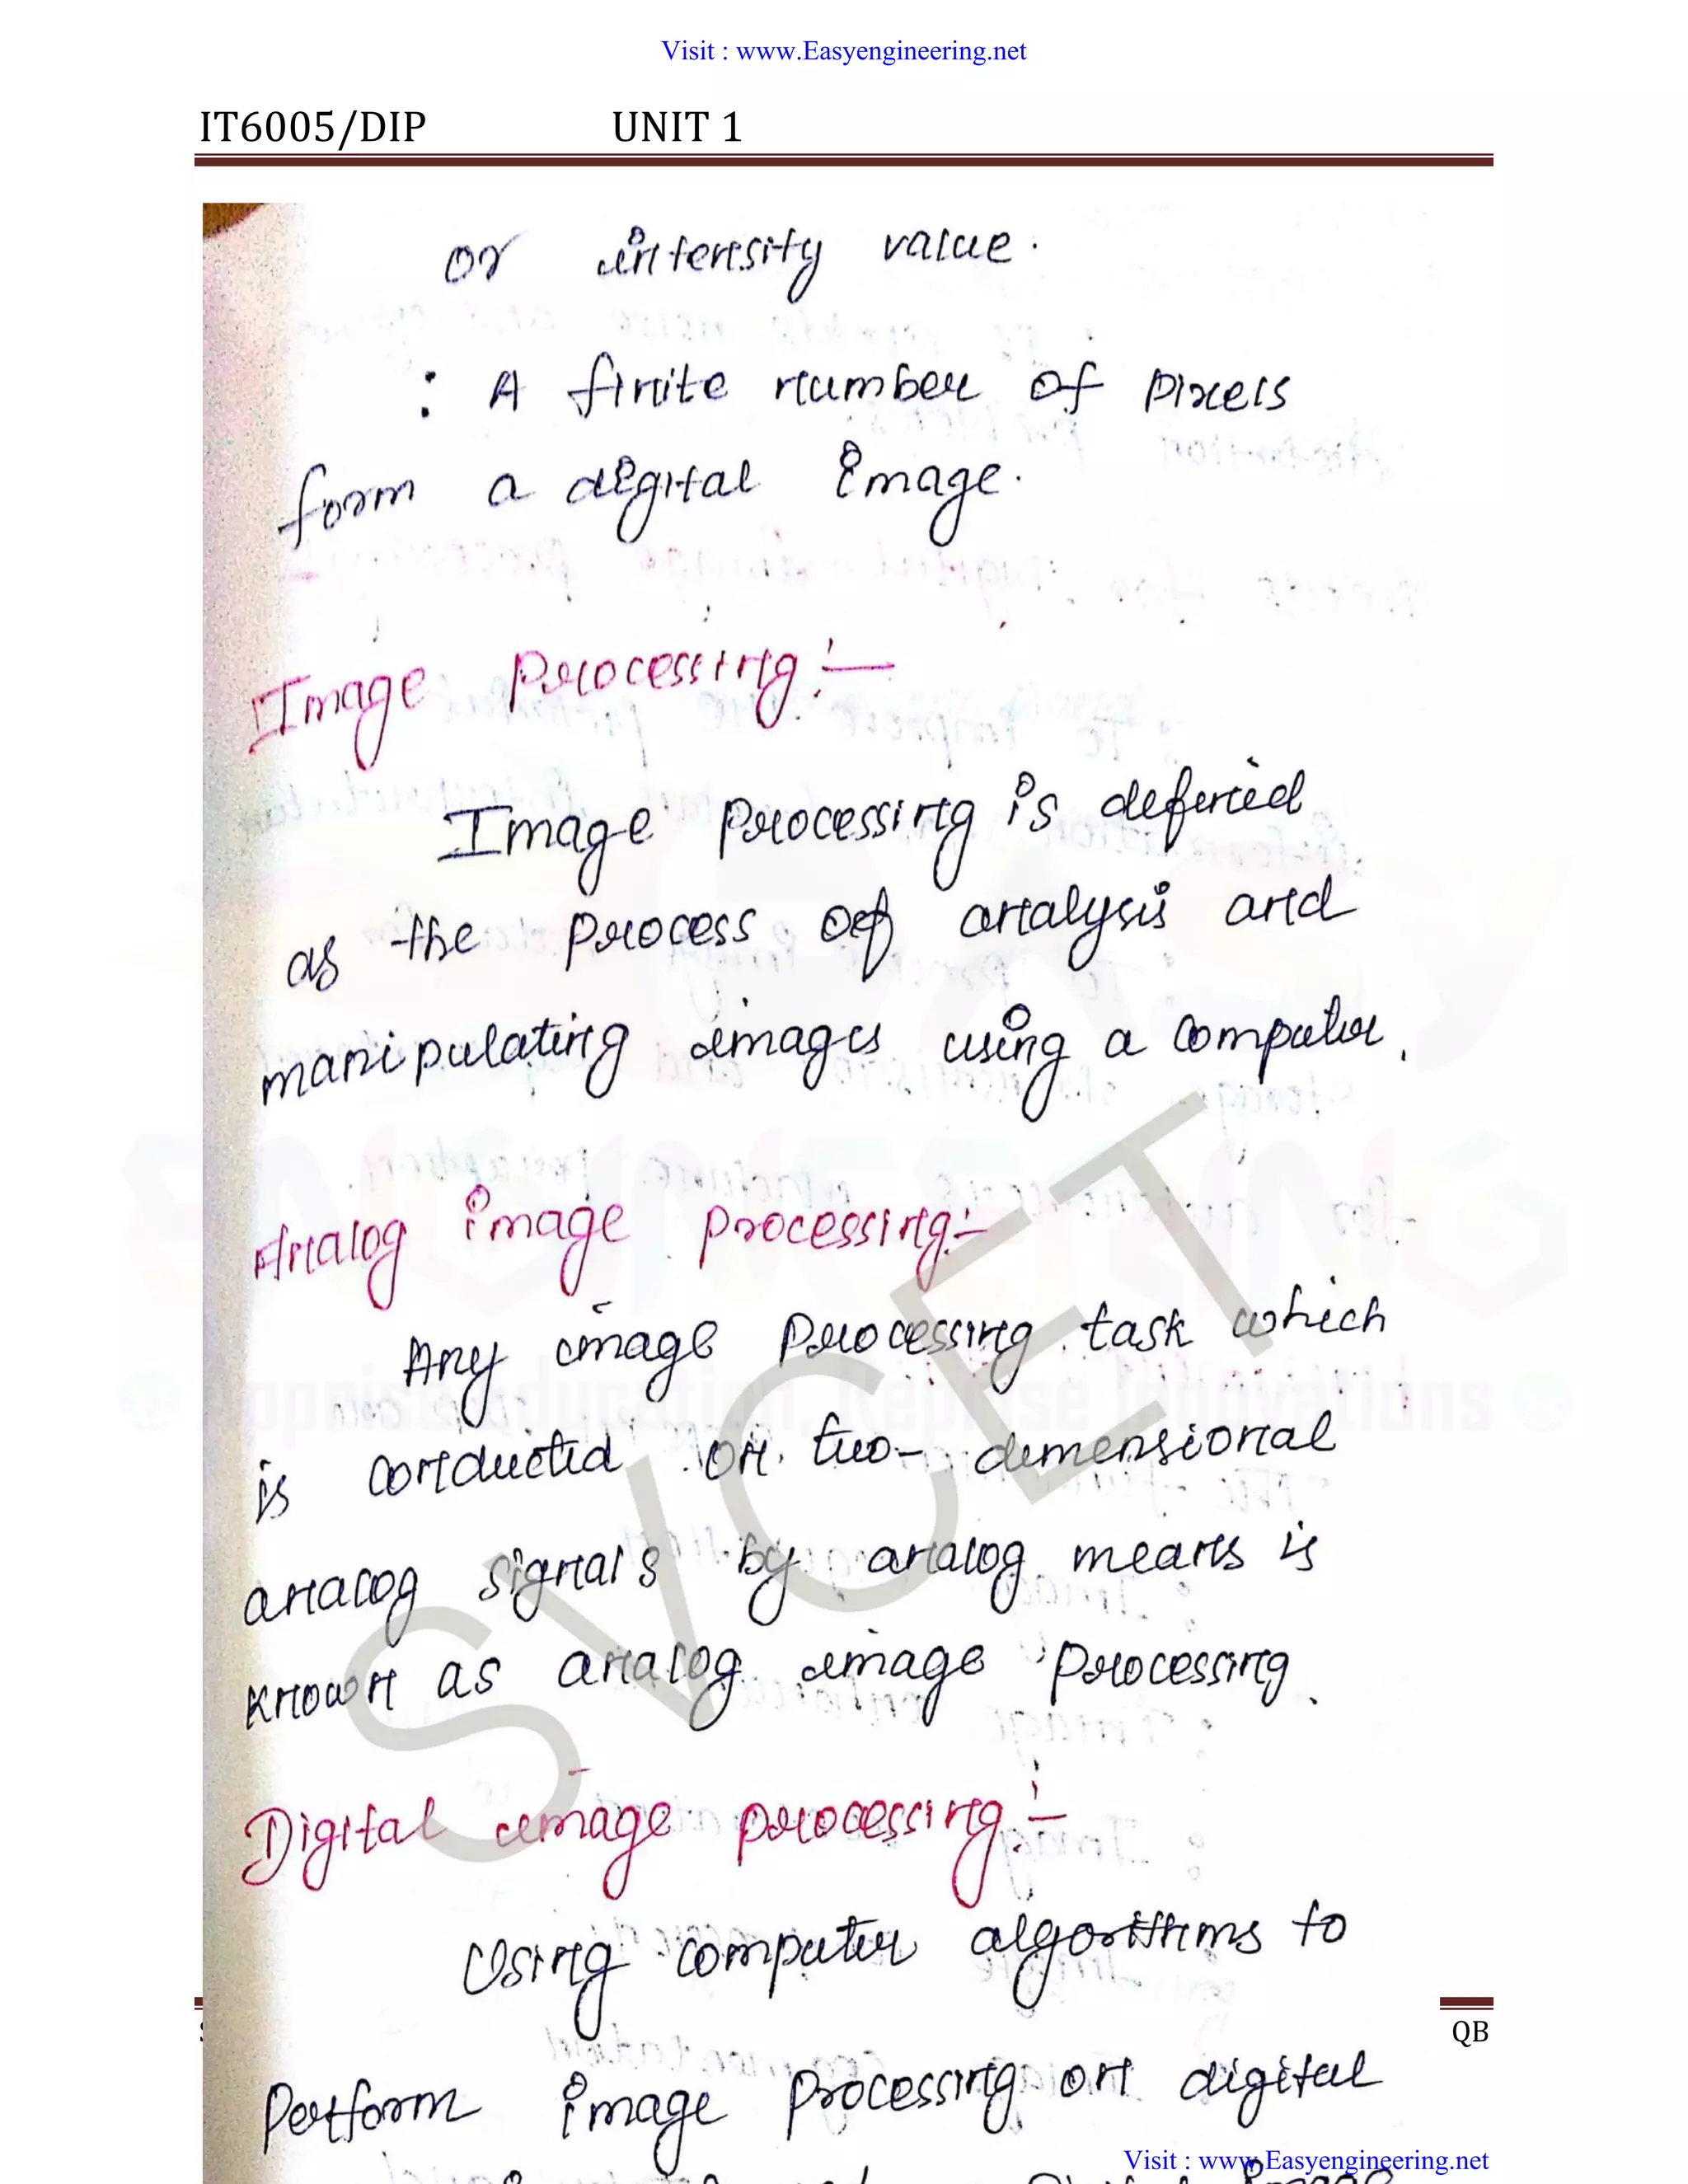 Visit : www.Easyengineering.net
IT6005/DIP UNIT 1
or intensity value.
: A finite number of pixels
form a digital image.
Image Processing :-
Image Processing is defined
as the process of analysis and
manipulating images using a computer.
Analog image processing:-
Any image processing task which
is conducted on two-dimensional
analog signals by analog means is
known as analog image processing.
Digital image processing :-
Using computer algorithms to
QB
Perform image processing on digital
Visit : www.Easyengineering.net
SVCET